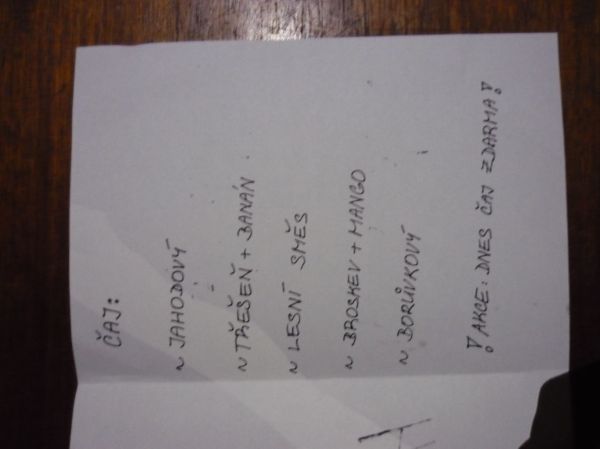 ČAJ:
~ JAHODOVÝ
~ TŘEŠEŇ + BANÁN
~ LESNÍ SMĚS
~ BROSKEV + MANGO
~ BORŮVKOVÝ
! AKCE: DNES ČAJ ZDARMA!
A